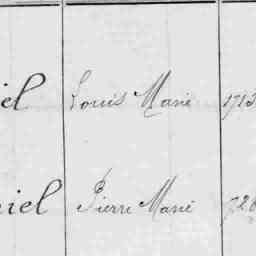 el Louis Marie 1713
iel Pierre Marie 726